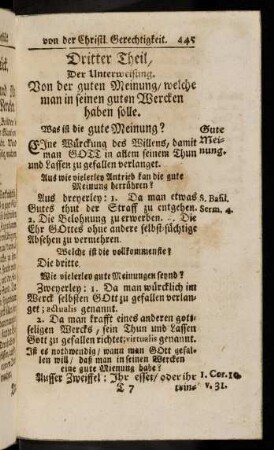 von der Christl. Gerechtigkeit. 445
Dritter Theil,
Der Unterweisung.
Von der guten Meinung/ welche
man in seinen guten Wercken
haben solle.
Was ist die gute Meinung?
EIne Würckung des Willens, damit
man GOTT in allem seinem Thun
und Lassen zu gefallen verlanget.
Gute
Mei-
nung.
Aus wie vielerley Antrieb kan die gute
Meinung herrühren?
Aus dreyerley: 1. Da man etwas
Gutes thut der Straff zu entgehen.
2. Die Belohnung zu erwerben. 3. Die
Ehr GOttes ohne andere selbst-süchtige
Absehen zu vermehren.
S. Basil.
Serm. 4.
Welche ist die vollkommenste?
Die dritte.
Wie vielerley gute Meinungen seynd?
Zweyerley: 1. Da man würcklich im
Werck selbsten GOtt zu gefallen verlan-
get; actualis genannt.
2. Da man krafft eines anderen gott-
seligen Wercks, sein Thun und Lassen
Gott zu gefallen richtet; virtualis genannt.
Ist es nothwendig/ wann man GOtt gefal-
len will/ daß man in seinen Wercken
eine gute Mienung habe?
Ausser Zweiffel: Ihr esset/ oder ihr
1. Cor. 10.
v. 31.
T 7 trin-